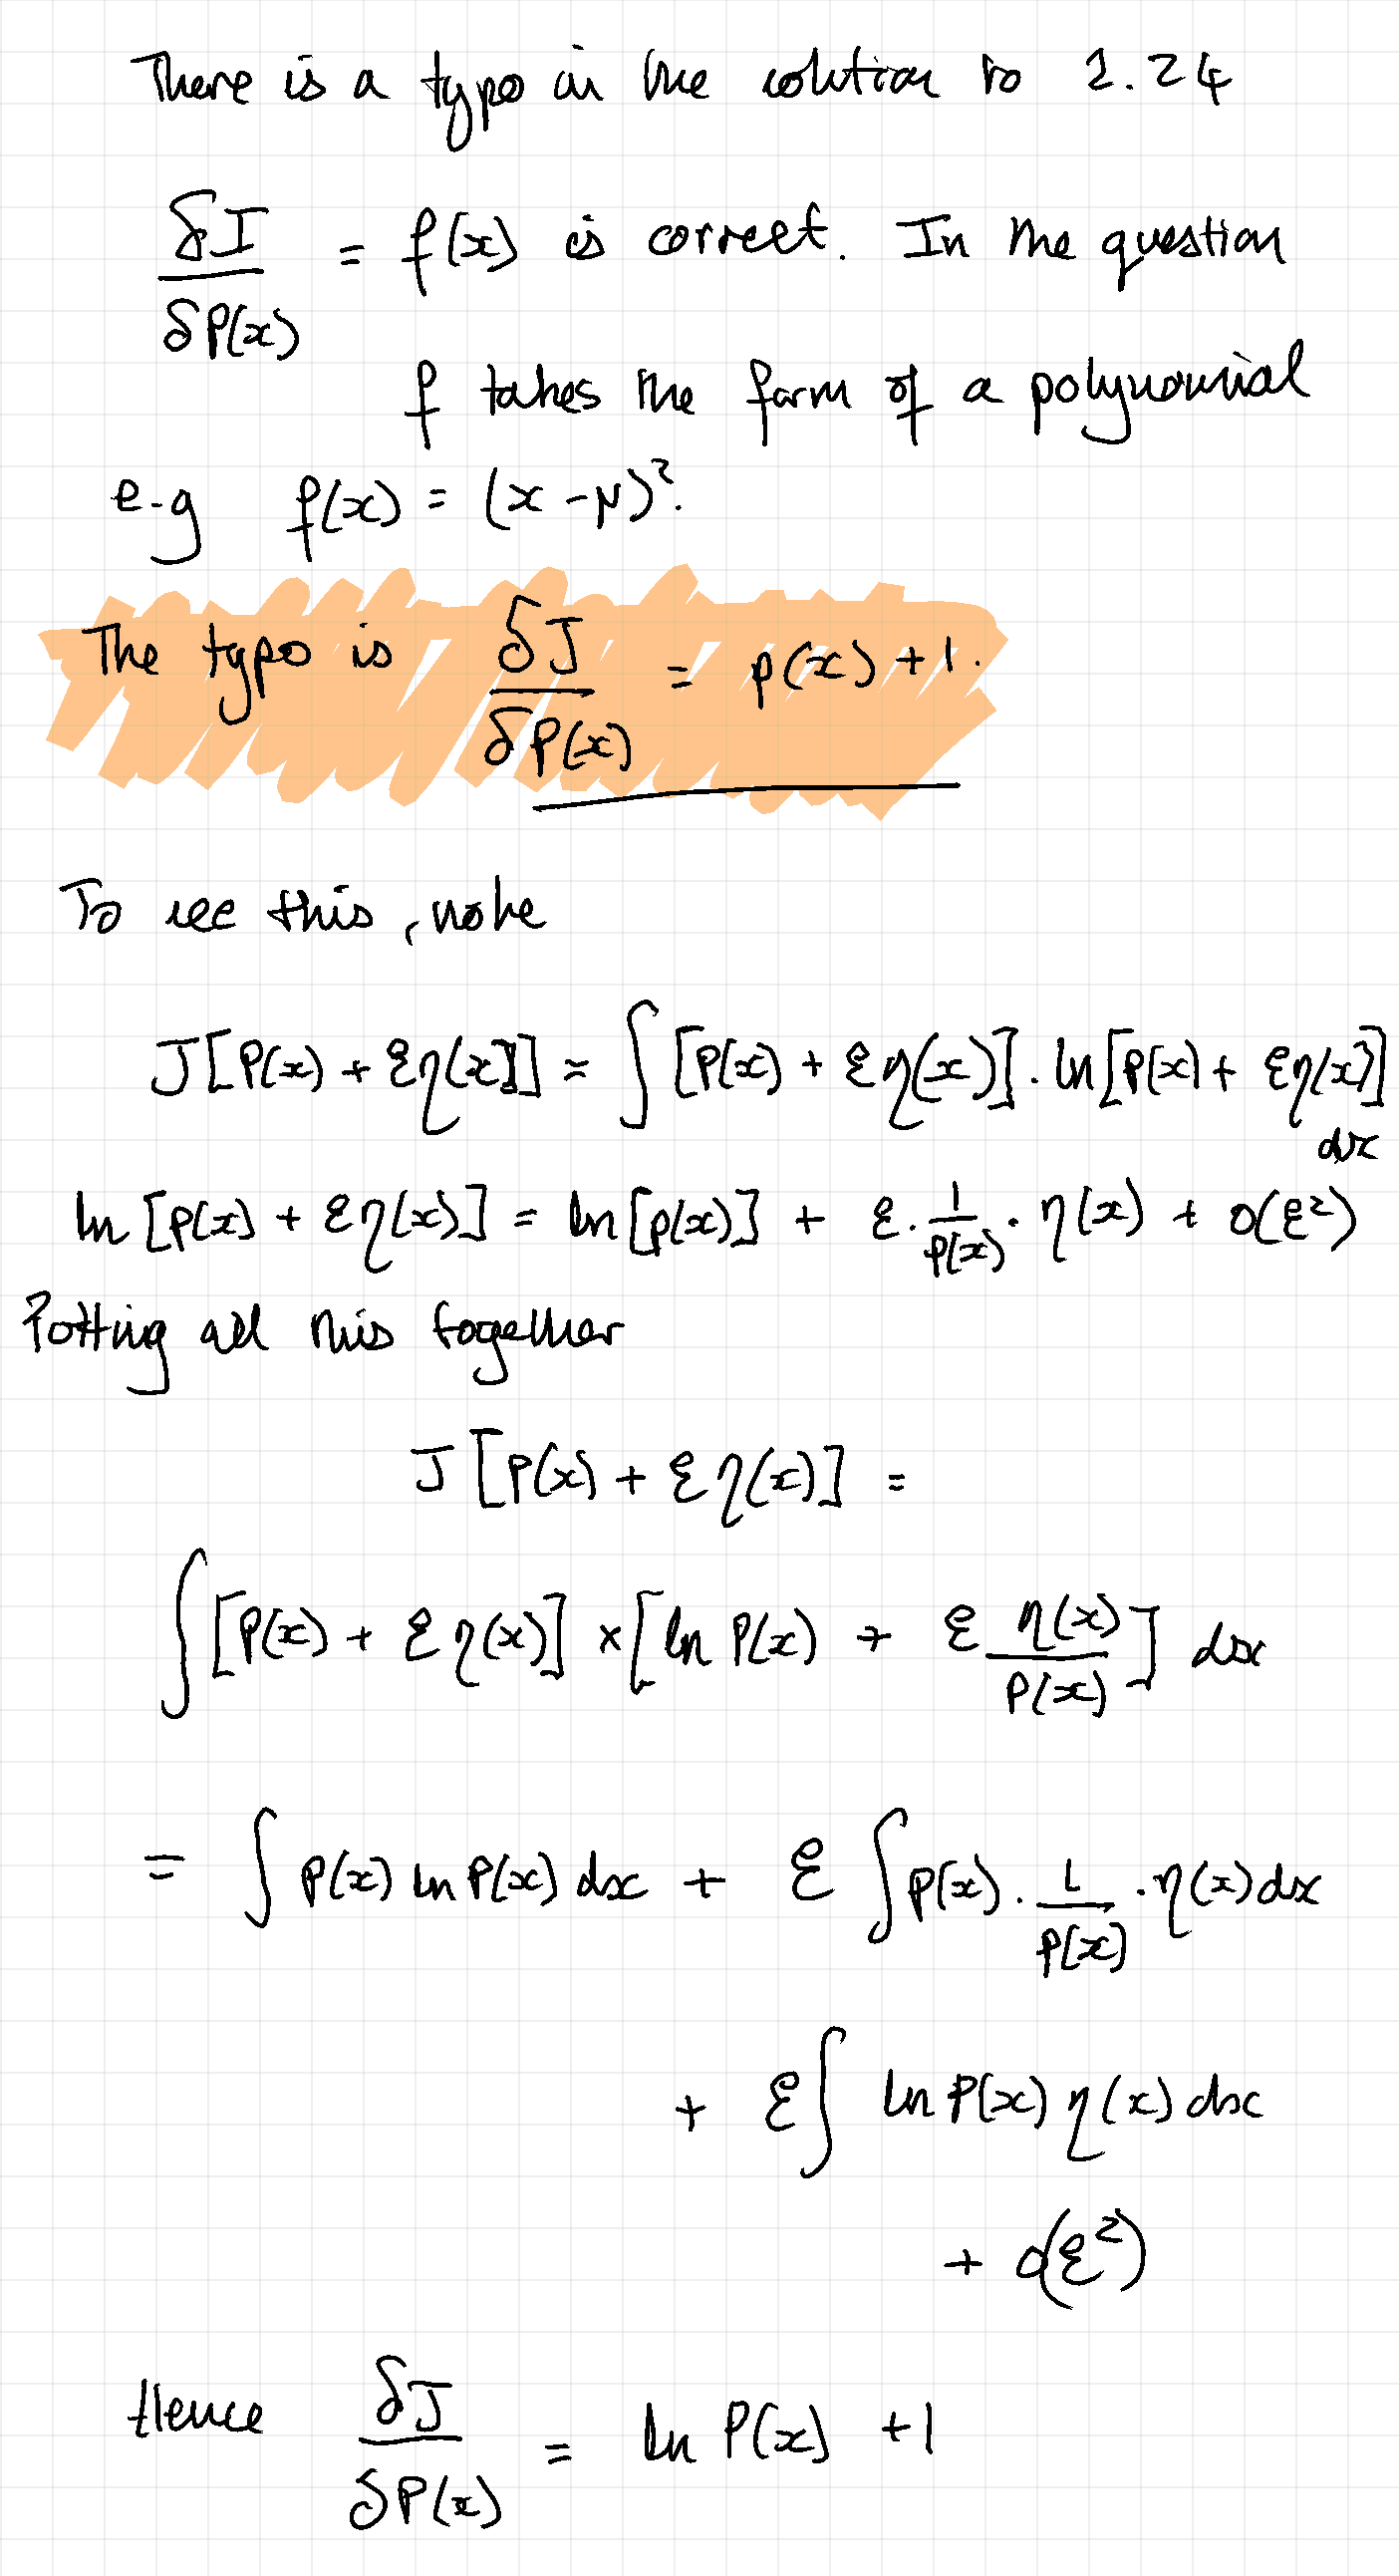 There is a typo in the solution to 2.24
δI/δP(x) = f(x) is correct. In the question
f takes the form of a polynomial
e.g f(x) = (x-μ)².
The typo is δJ/δP(x) = p(x) + 1.
To see this, note
J[P(x) + εη(x)] = ∫ [P(x) + εη(x)] . ln[P(x) + εη(x)] dx
ln [p(x) + εη(x)] = ln [p(x)] + ε . 1/P(x) . η(x) + O(ε²)
Putting all this together
J [P(x) + εη(x)] =
∫ [P(x) + εη(x)] × [ln P(x) + ε η(x)/P(x)] dx
= ∫ P(x) ln P(x) dx + ε ∫ p(x) . 1/p(x) . η(x) dx
+ ε ∫ ln P(x) η(x) dx
+ O(ε²)
Hence δJ/δP(x) = ln P(x) + 1